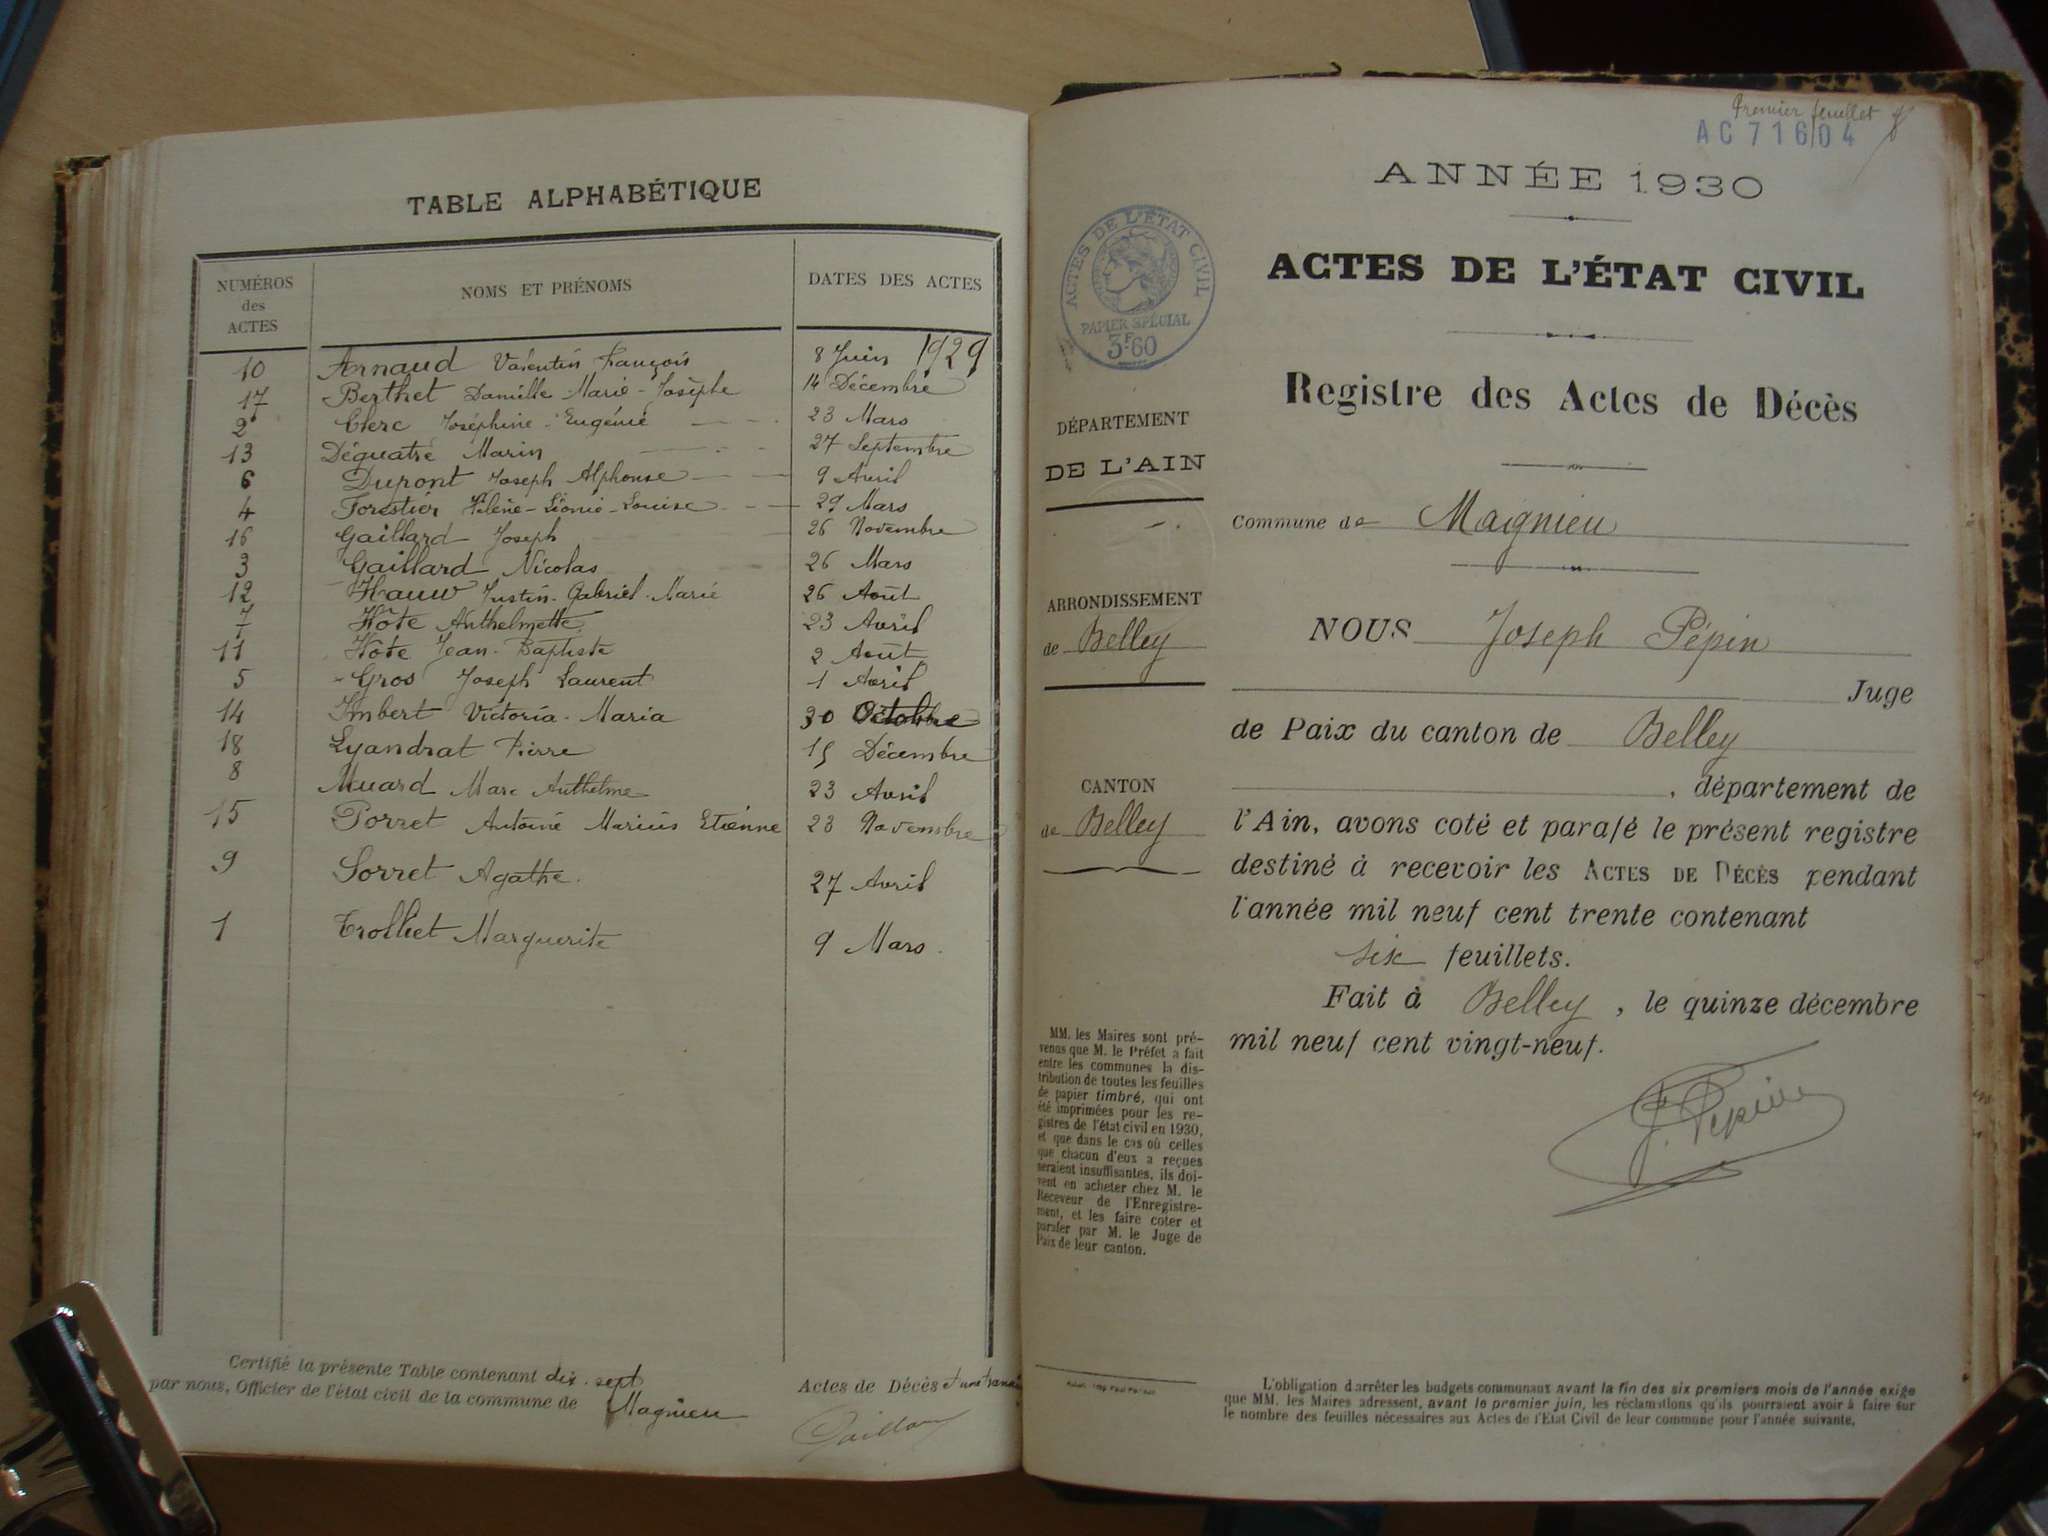 TABLE ALPHABÉTIQUE
NUMÉROS des ACTES NOMS ET PRÉNOMS DATES DES ACTES
10 Arnaud Valentin François 8 Juin 1929
17 Berthet Danielle-Marie-Josèphe 14 Décembre
2 Clerc Joséphine-Eugénie 23 Mars
13 Déquatre Marin 27 Septembre
6 Dupont Joseph Alphonse 9 Avril
4 Forestier Hélène-Léonie-Louise 29 Mars
16 Gaillard Joseph 26 Novembre
3 Gaillard Nicolas 26 Mars
12 Hauw Justin-Gabriel-Marie 26 Août
7 Hôte Anthelmette 23 Avril
11 Hôte Jean-Baptiste 2 Août
5 Gros Joseph Laurent 1 Avril
14 Imbert Victoria-Maria 30 Octobre
18 Lyandrat Pierre 15 Décembre
8 Muard Marc Anthelme 23 Avril
15 Porret Antoine Marius Etienne 23 Novembre
9 Sorret Agathe. 27 Avril
1 Trolliet Marguerite 9 Mars.
Certifié la présente Table contenant dix-sept Actes de Décès et une
par nous, Officier de l'état civil de la commune de Magnieu
Gaillard
Premier feuillet
AC 71604
ANNÉE 1930
ACTES DE L'ÉTAT CIVIL
PAPIER SPÉCIAL
3F60
ACTES DE L'ÉTAT CIVIL
Registre des Actes de Décès
DÉPARTEMENT
DE L'AIN
Commune de Magnieu
ARRONDISSEMENT
de Belley
NOUS Joseph Pépin
Juge
de Paix du canton de Belley
CANTON
de Belley
, département de
l'Ain, avons coté et parafé le présent registre
destiné à recevoir les ACTES DE DÉCÈS pendant
l'année mil neuf cent trente contenant
six feuillets.
Fait à Belley, le quinze décembre
mil neuf cent vingt-neuf.
J. Pépin
MM. les Maires sont pré-
venus que M. le Préfet a fait
entre les communes la dis-
tribution de toutes les feuilles
de papier timbré, qui ont
été imprimées pour les re-
gistres de l'état civil en 1930,
et que dans le cas où celles
que chacun d'eux a reçues
seraient insuffisantes, ils doi-
vent en acheter chez M. le
Receveur de l'Enregistre-
ment, et les faire coter et
parafer par M. le Juge de
Paix de leur canton.
L'obligation d'arrêter les budgets communaux avant la fin des six premiers mois de l'année exige
que MM. les Maires adressent, avant le premier juin, les réclamations qu'ils pourraient avoir à faire sur
le nombre des feuilles nécessaires aux Actes de l'État Civil de leur commune pour l'année suivante.